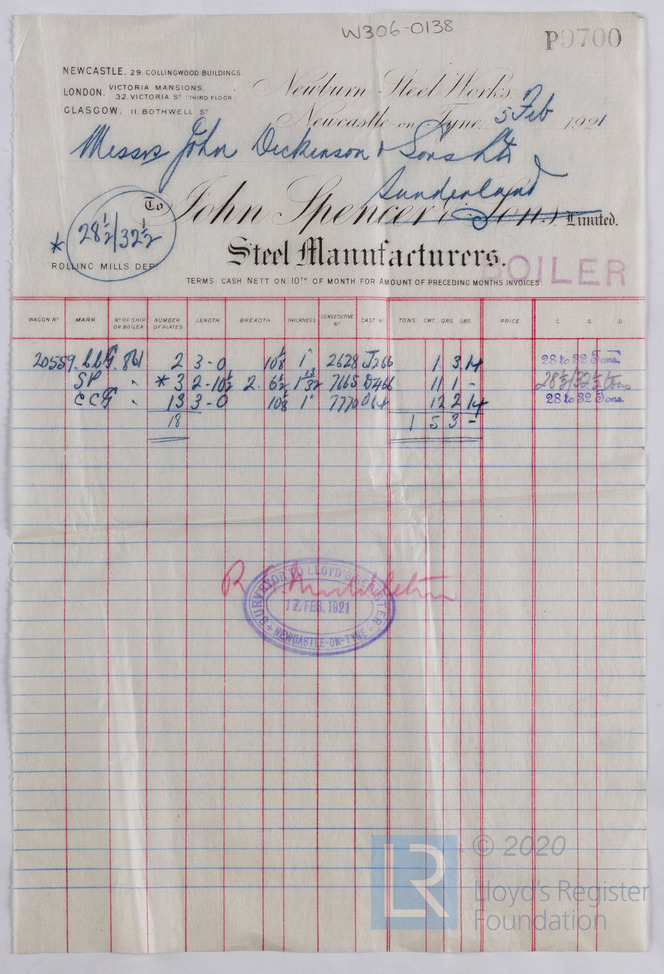 W306-0138
P9700
NEWCASTLE. 29. COLLINGWOOD BUILDINGS
LONDON. VICTORIA MANSIONS. 32. VICTORIA ST (THIRD FLOOR)
GLASGOW. 11. BOTHWELL ST
Newburn Steel Works,
Newcastle-on-Tyne, 5 Feb 1921
Messrs John Dickinson & Sons Ltd
Sunderland
To John Spencer & Sons, Limited.
* 28½/32½
Steel Manufacturers.
ROLLING MILLS DEPT
BOILER
TERMS: CASH NETT ON 10TH OF MONTH FOR AMOUNT OF PRECEDING MONTHS INVOICES
WAGON No MARK No OF SHIP OR BOILER NUMBER OF PLATES LENGTH BREADTH THICKNESS CONSECUTIVE No CAST No TONS CWT QRS LBS PRICE L S D
20559 861 2 3-0 10⅛ 1" 2628 J266 1 3 14 28 to 32 Tons.
SP " * 3 2-10½ 2-6½ 1 13/32 7165 11 1 - 28½/32½ tons
CCG " 13 3-0 10⅛ 1" 7770 12 2 14 28 to 32 Tons.
18 1 5 3 -
R. Middleton
SURVEYOR TO LLOYD'S REGISTER
17 FEB. 1921
NEWCASTLE-ON-TYNE
© 2020
LR Lloyd's Register
Foundation